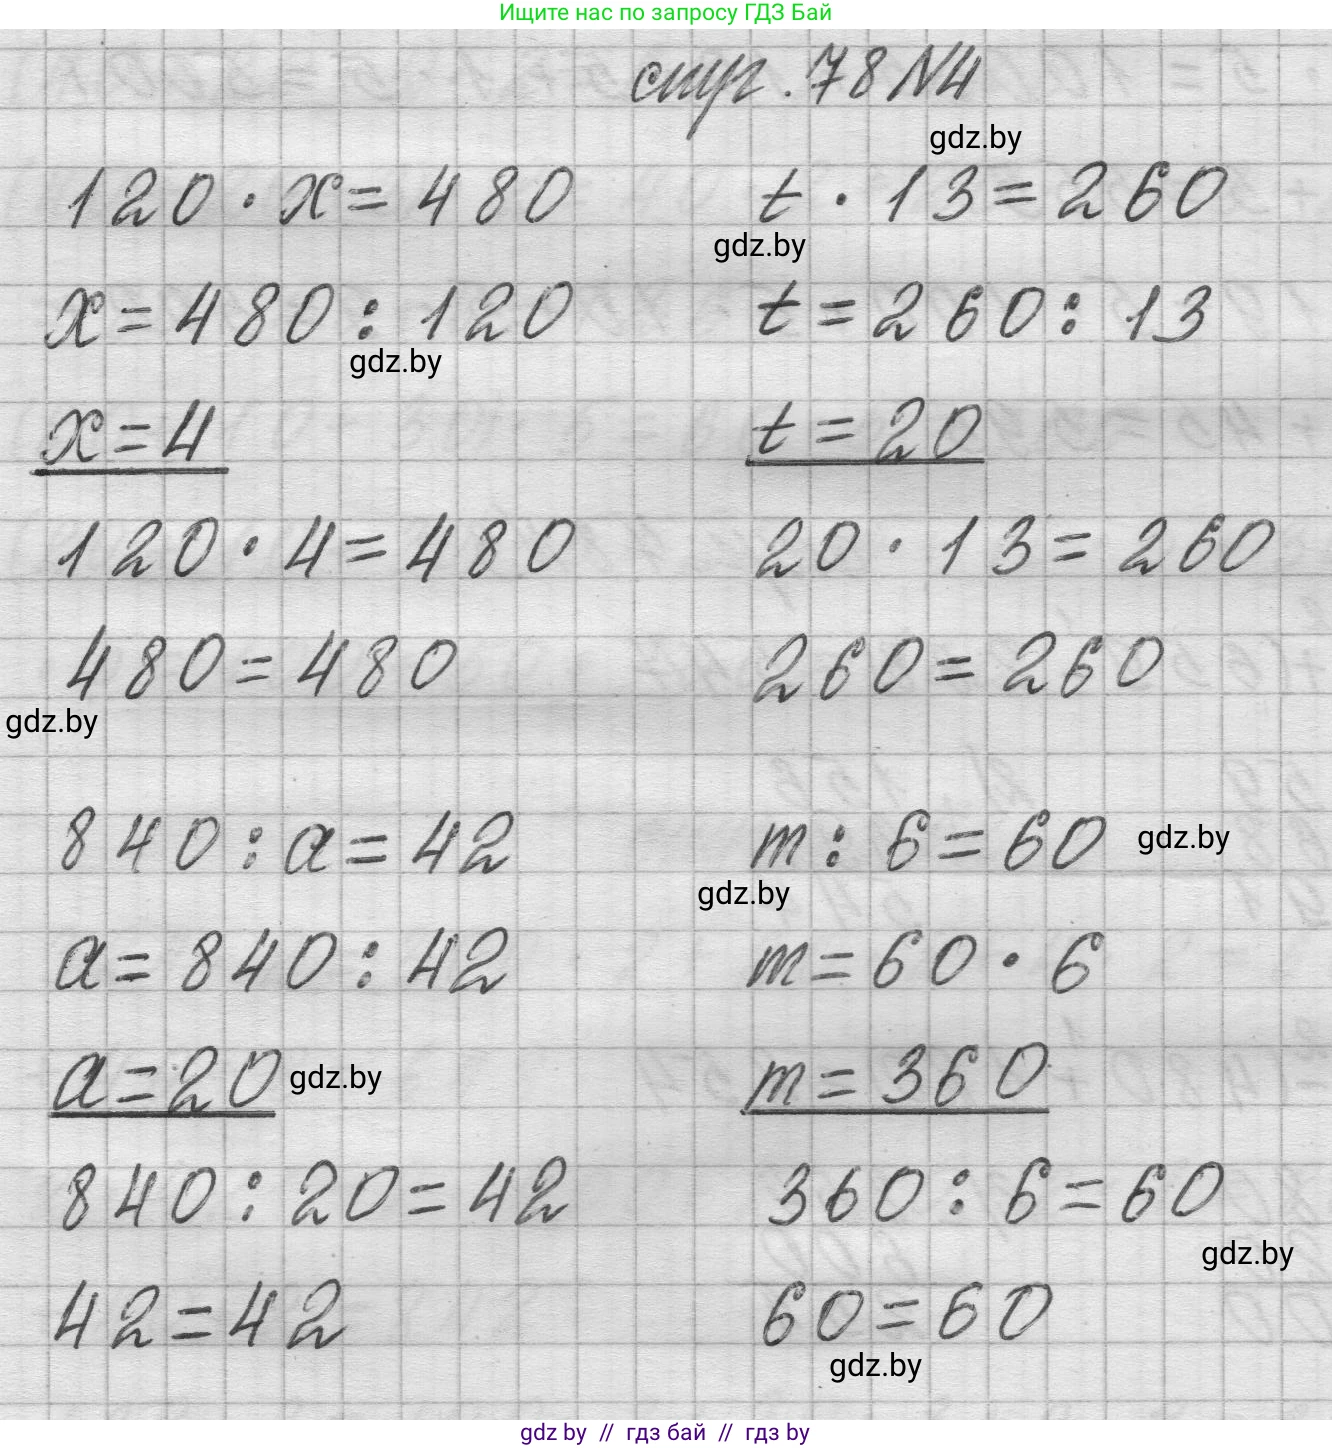 Ищите нас по запросу ГДЗ Бай
стр. 78 №4
gdz.by
120 · x = 480
x = 480 : 120
gdz.by
x = 4
120 · 4 = 480
480 = 480
gdz.by
t · 13 = 260
gdz.by
t = 260 : 13
t = 20
20 · 13 = 260
260 = 260
840 : a = 42
a = 840 : 42
a = 20 gdz.by
840 : 20 = 42
42 = 42
m : 6 = 60 gdz.by
gdz.by
m = 60 · 6
m = 360
360 : 6 = 60
gdz.by
60 = 60
gdz.by
gdz by // гдз бай // гдз by